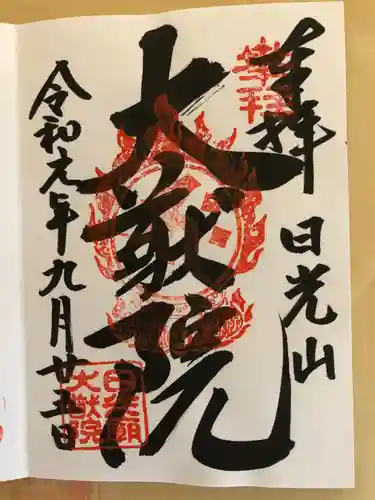 奉拝
日光山
大猷院
令和元年九月廿五日
大猷院